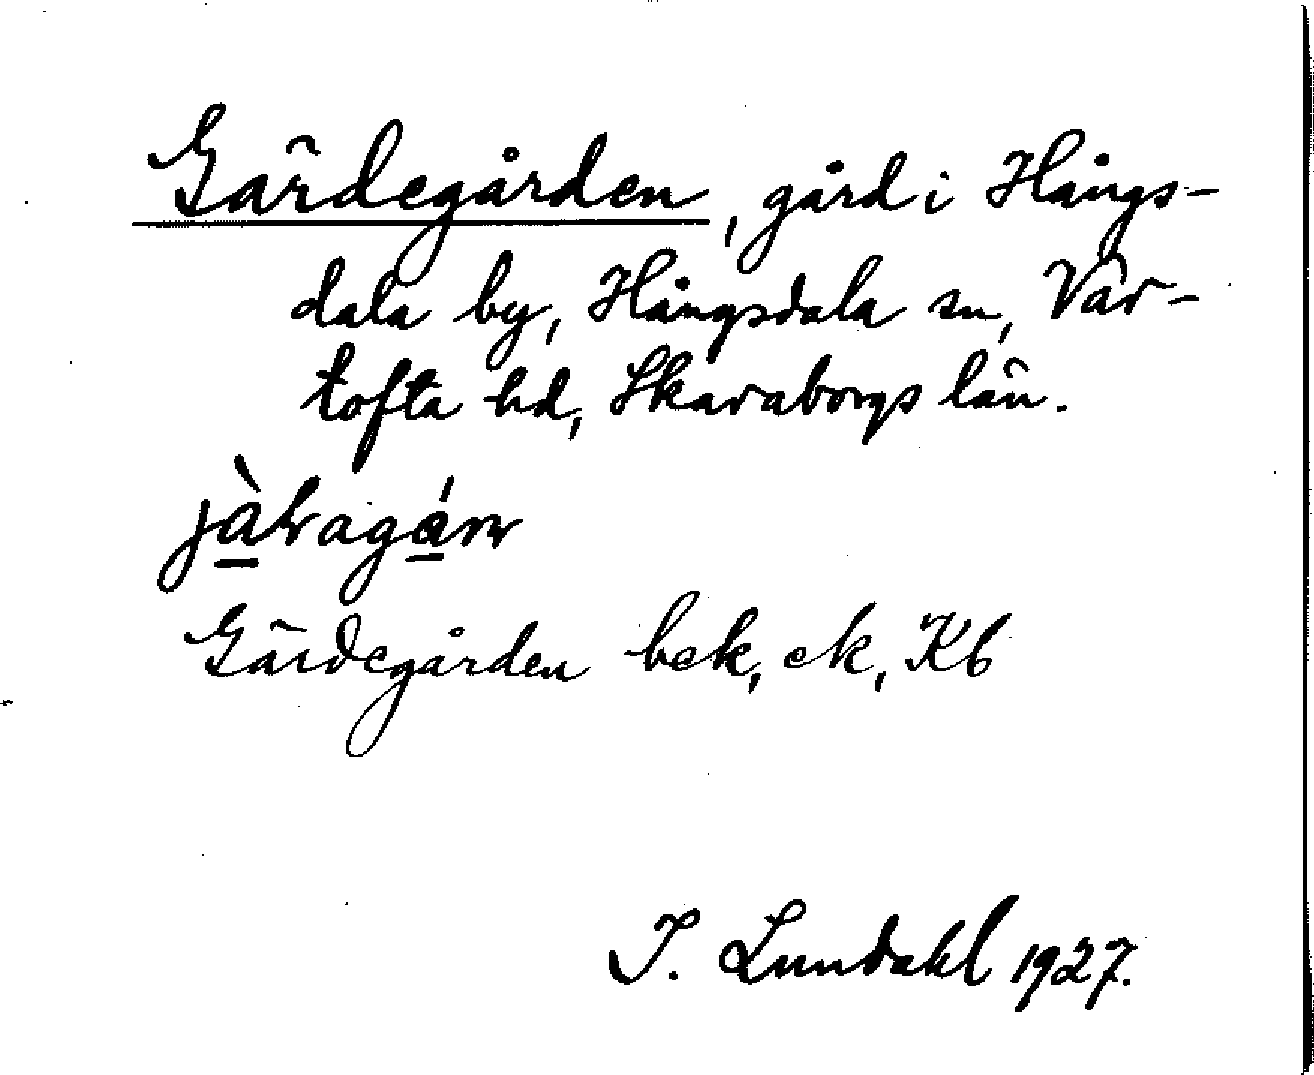 Gärdegården, gård i Hångs-
dala by, Hångsdala sn, Var-
tofta hd, Skaraborgs län.
Gärdegården bek, ek, Kb
I. Lundahl 1927.